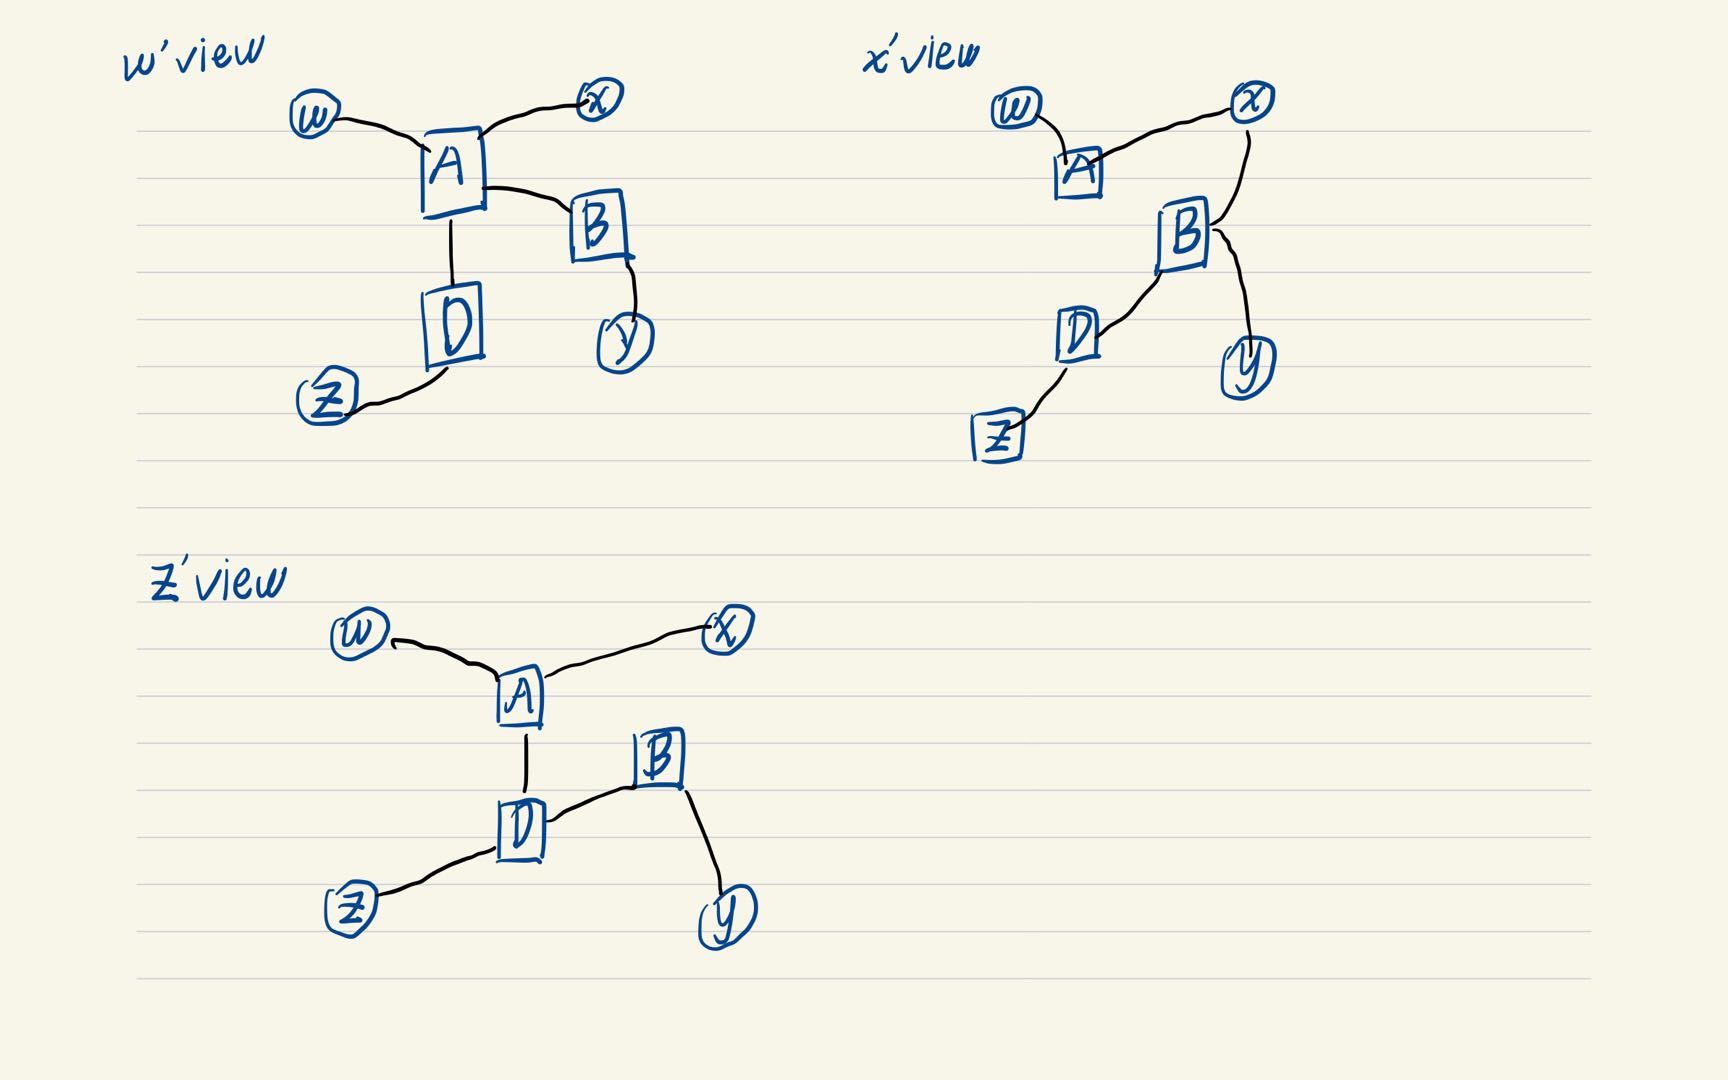 w' view
w
x
A
B
D
y
z
x' view
w
x
A
B
D
y
z
z' view
w
x
A
B
D
z
y